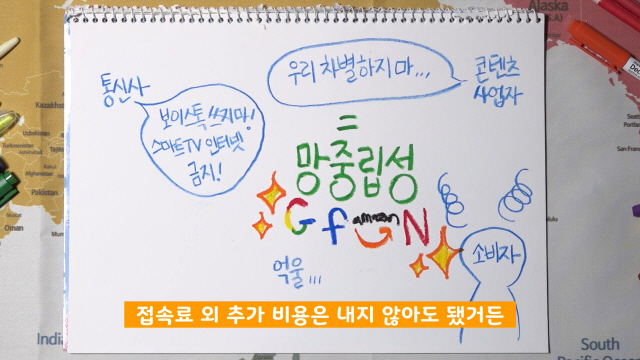 Alaska
(U.S.)
통신사
우리 차별하지 마...
콘텐츠
사업자
보이스톡 쓰지마!
스마트TV 인터넷
금지!
=
망중립성
G f amazon N
억울...
소비자
접속료 외 추가 비용은 내지 않아도 됐거든
Kazakhstan
Uzbekistan
Turkmenistan
Afghanistan
Iran
Pakistan
Oman
India
San Fran
South
Pacific Ocean